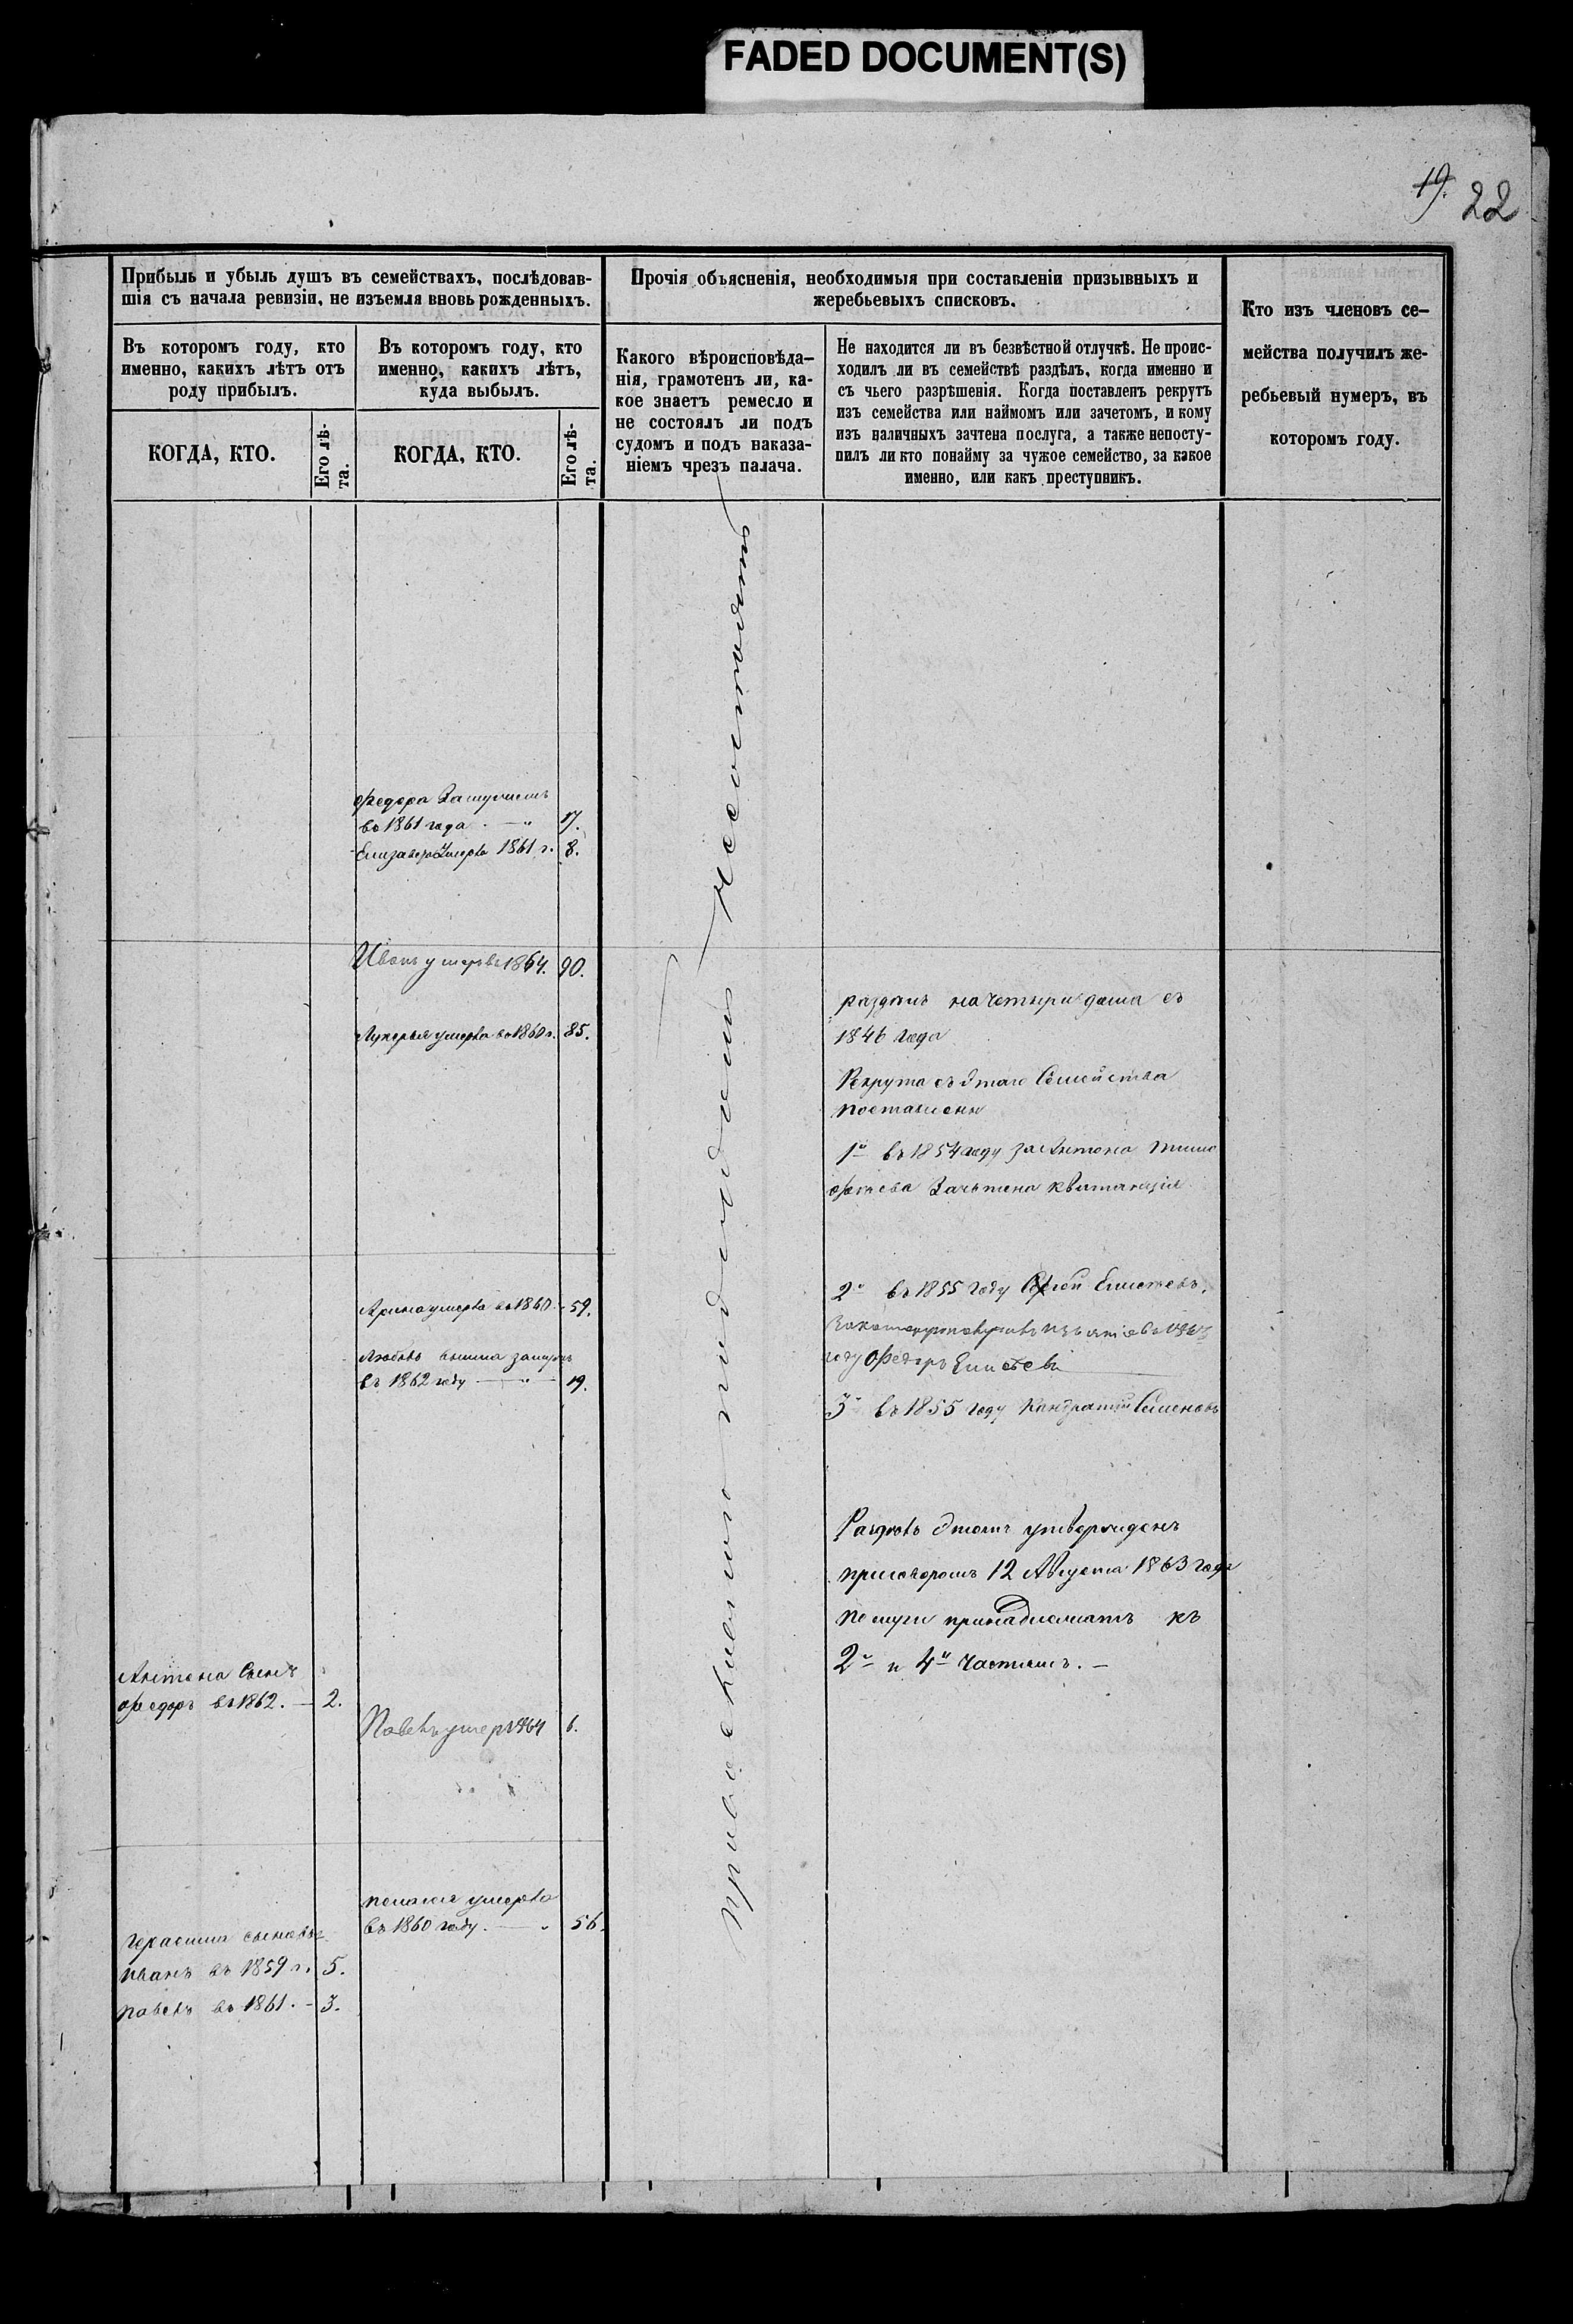 FADED DOCUMENT(S)
19. 22
Прибыль и убыль душъ въ семействахъ, послѣдовав-
шія съ начала ревизіи, не изъемля вновь рожденныхъ.
Въ которомъ году, кто
именно, какихъ лѣтъ отъ
роду прибылъ.
КОГДА, КТО.
Его лѣ-
та.
Въ которомъ году, кто
именно, какихъ лѣтъ,
куда выбылъ.
КОГДА, КТО.
Его лѣ-
та.
Прочія объясненія, необходимыя при составленіи призывныхъ и
жеребьевыхъ списковъ.
Какого вѣроисповѣда-
нія, грамотенъ ли, ка-
кое знаетъ ремесло и
не состоялъ ли подъ
судомъ и подъ наказа-
ніемъ чрезъ палача.
Не находится ли въ безвѣстной отлучкѣ. Не проис-
ходилъ ли въ семействѣ раздѣлъ, когда именно и
съ чьего разрѣшенія. Когда поставленъ рекрутъ
изъ семейства или наймомъ или зачетомъ, и кому
изъ наличныхъ зачтена послуга, а также непосту-
пилъ ли кто понайму за чужое семейство, за какое
именно, или какъ преступникъ.
Кто изъ членовъ се-
мейства получилъ же-
ребьевый нумеръ, въ
которомъ году.
Антона Сынъ
Федоръ въ 1862. — 2.
Герасима сыновья
иванъ въ 1859 г. 5.
павелъ въ 1861. — 3.
Федора Замужемъ
въ 1861 года 17.
Елизавета Умерла 1861 г. 8.
Иванъ умеръ въ 1864. 90.
Лукерья умерла въ 1860 г. 85.
Арина умерла въ 1860. 59.
Любовь вышла замужъ
въ 1862 году 19.
Павелъ умеръ 1864 6.
умерла
въ 1860 году. 56.
раздѣлъ на четыри дома съ
1846 года
Рекрута съ этаго Семейства
поставлены
1й въ 1854 году за Антона Тимо
фѣева Зачтена квитанція
2й въ 1855 году
году Федоръ
3й въ 1855 году Кандратій Семеновъ
Раздѣлъ этотъ утвержденъ
приговоромъ 12 Августа 1863 года
послуги принадлежатъ къ
2й и 4й частямъ. —